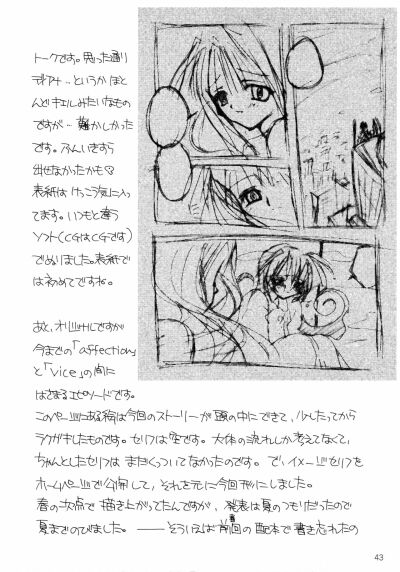 トークです。思った通り
というかほと
んどキエルみたいなもの
ですが… 難かしかった
です。ふんいきすら
出せなかったかも
表紙はけっこう気に入っ
てます。いつもと違う
ソフト(CGはCGです)
でぬりました。表紙で
は初めてですね。
あと、オリジナルですが
今までの「affection」
と「Vice」の間に
はさまるエピソードです。
このページにある絵は今回のストーリーが頭の中にできて、少したってから
ラクガキしたものです。セリフは空です。大体の流れしか考えてなくて、
ちゃんとしたセリフはまだくっついてなかったのです。で、イメージセリフを
ホームページで公開して、それを元に今回本にしました。
春の次点で描き上がってたんですが、発表は夏のつもりだったので
夏までのびました。――そういえば前回の配本で書き忘れたの
43